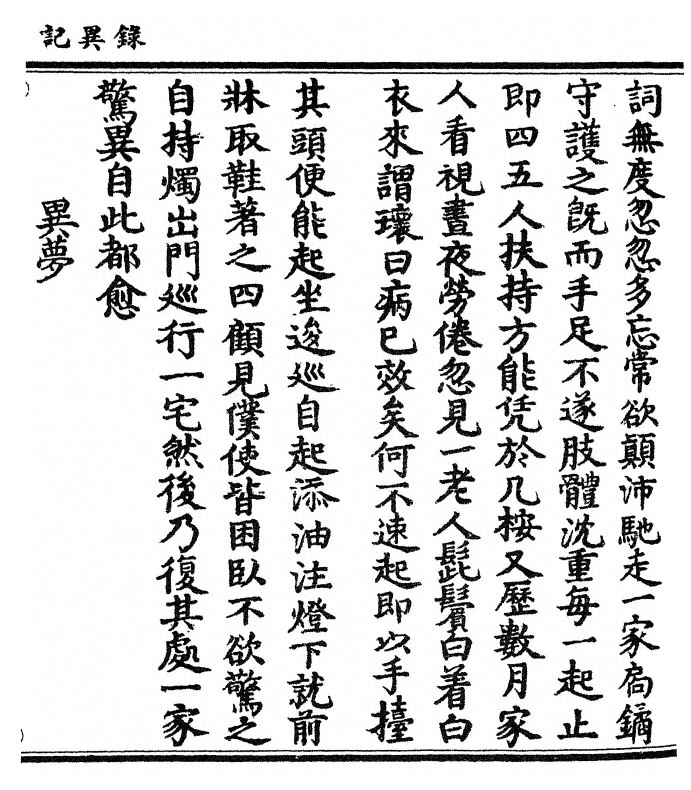 記異錄
詞無度忽忽多忘常欲顛沛馳走一家扃鐍
守護之旣而手足不遂肢體沈重每一起止
即四五人扶持方能凭於几桉又歷數月家
人看視晝夜勞倦忽見一老人髭鬢白着白
衣來謂瓌曰病已效矣何不速起即以手擡
其頭便能起坐逡廵自起添油注燈下就前
牀取鞋著之四顧見僕使皆困臥不欲驚之
自持燭出門廵行一宅然後乃復其處一家
驚異自此都愈
異夢